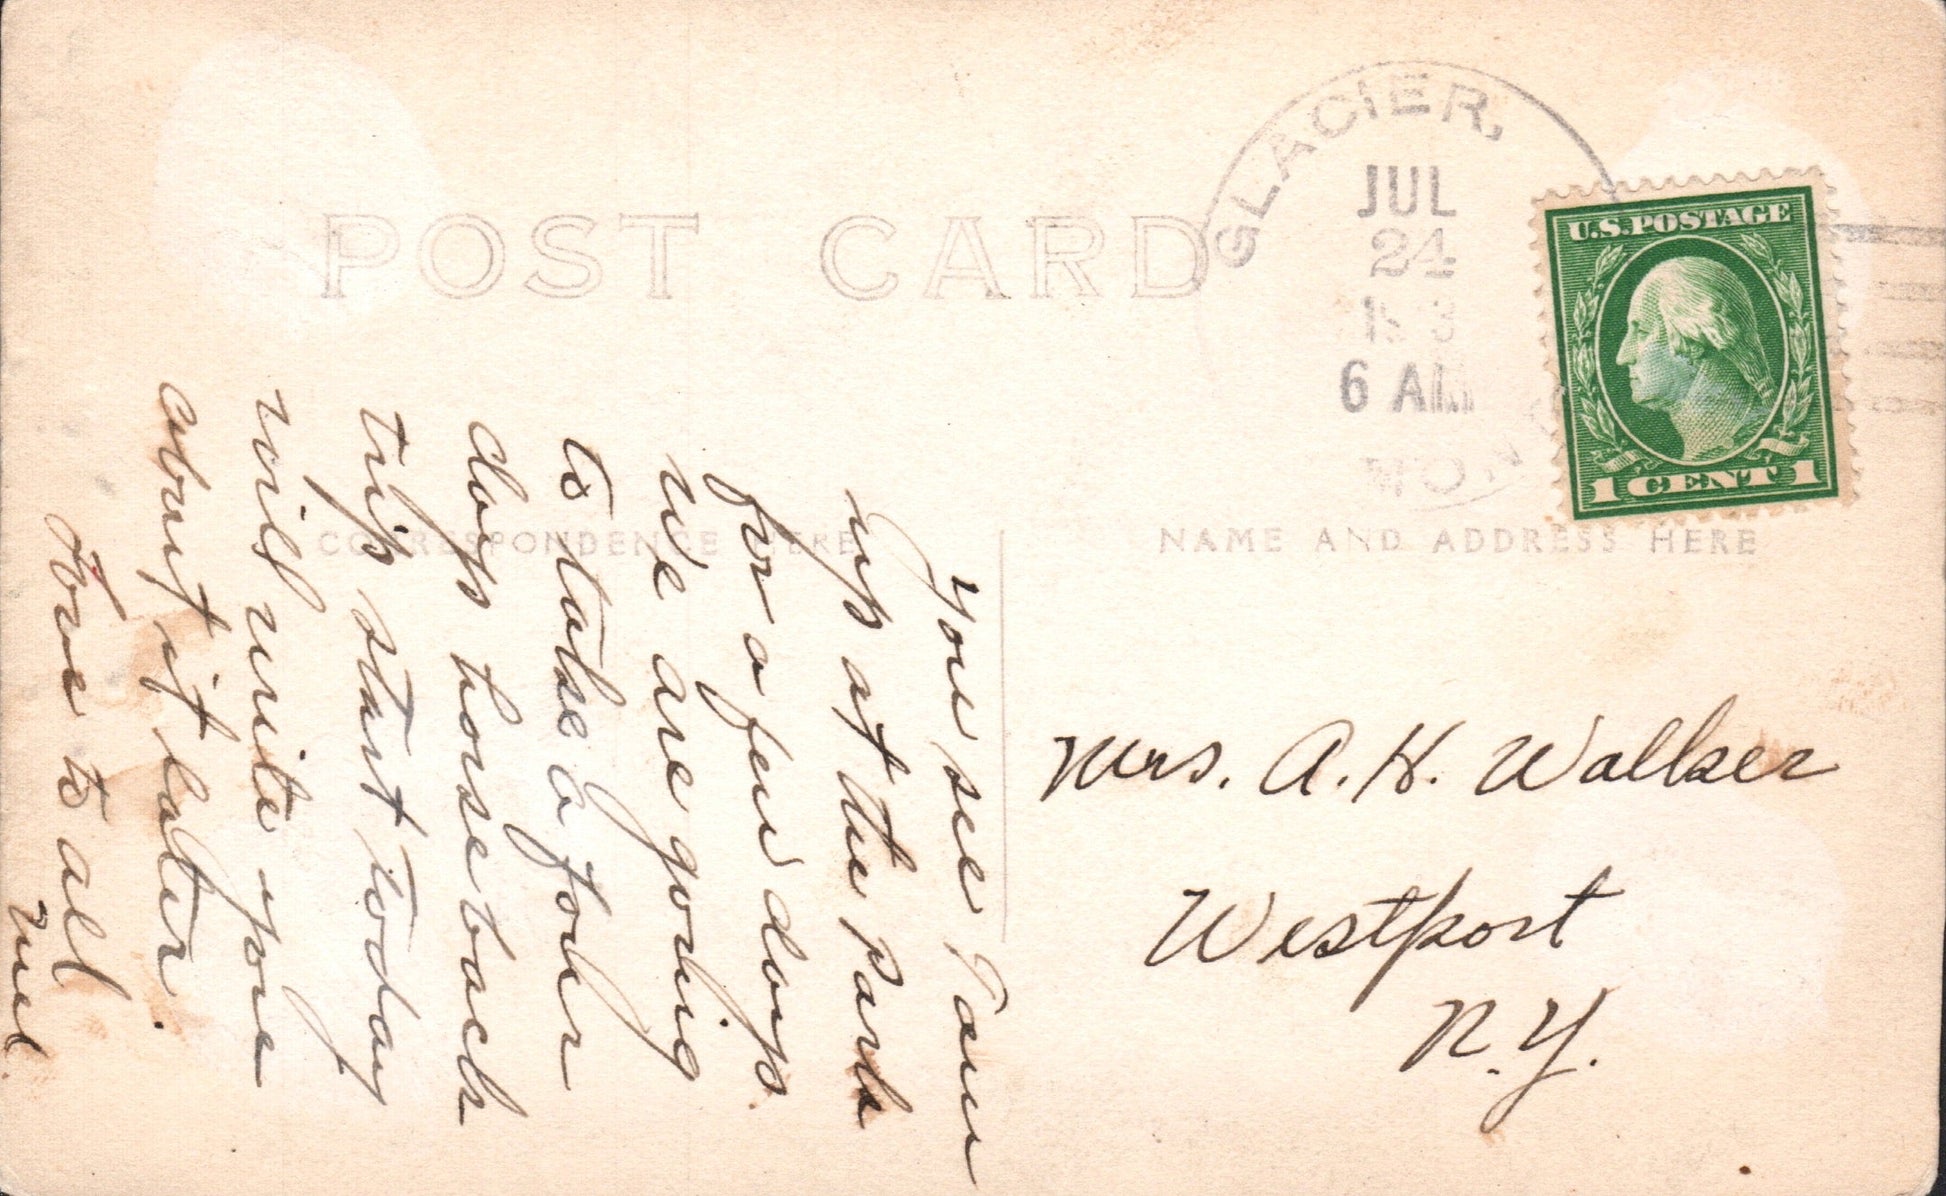 POST CARD
GLACIER,
JUL
24
6 AM
MONT
U.S. POSTAGE
1 CENT 1
CORRESPONDENCE HERE
NAME AND ADDRESS HERE
You see I am
up at the Park
for a few days.
We are going
to take a four
days horse back
trip start today
will write you
about it later.
Love to all
Mrs. A. H. Walker
Westport
N.Y.